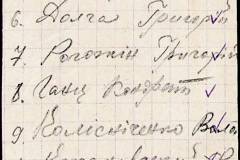 6. Долга Григорій
7. Рогожін Григорій
8. Ганц Кондрат
9. Колісніченко